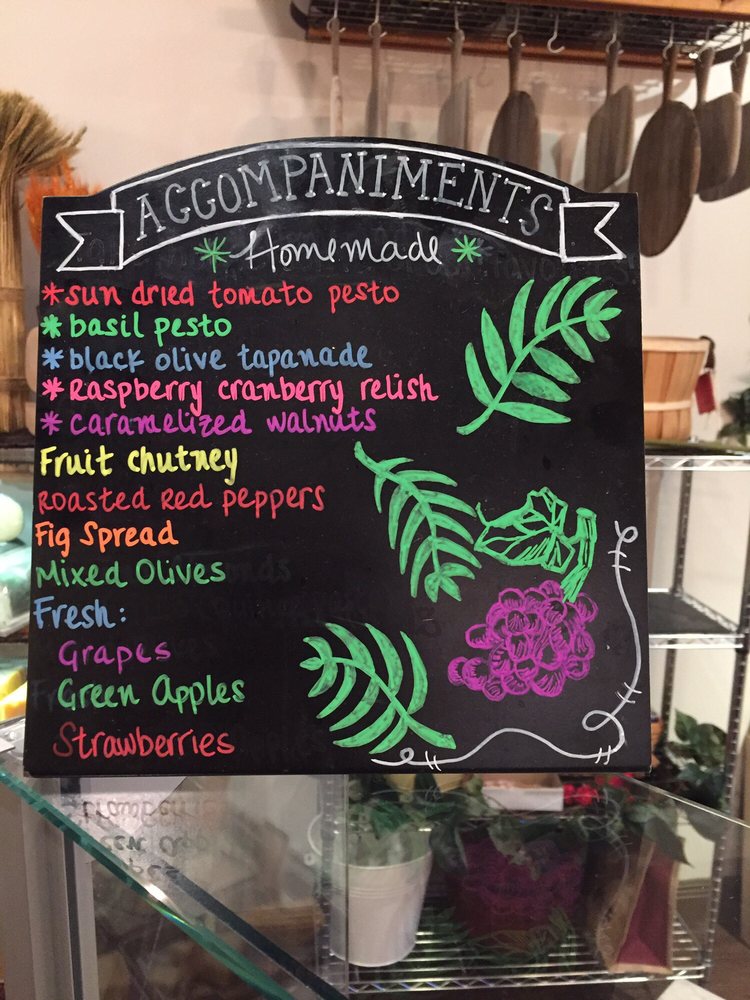 ACCOMPANIMENTS
*Homemade*
*sun dried tomato pesto
*basil pesto
*black olive tapanade
*Raspberry cranberry relish
*caramelized walnuts
Fruit chutney
Roasted Red peppers
Fig Spread
Mixed Olives
Fresh:
Grapes
Green Apples
Strawberries